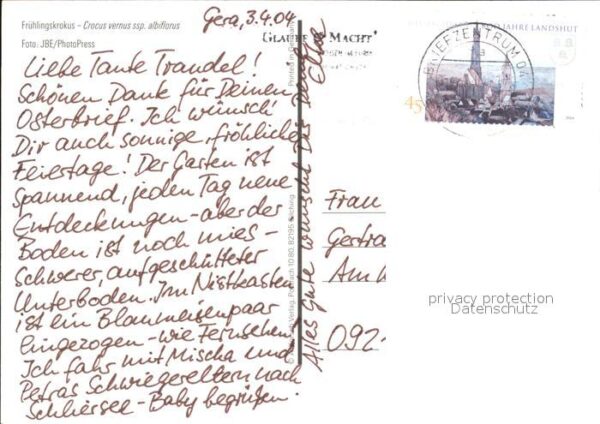 Frühlingskrokus – Crocus vernus ssp. albiflorus
Foto: JBE/PhotoPress
Gera, 3.4.04
Liebe Tante Traudel!
Schönen Dank für Deinen
Osterbrief. Ich wünsch'
Dir auch sonnige, fröhliche
Feiertage! Der Garten ist
spannend, jeden Tag neue
Entdeckungen – aber der
Boden ist noch mies –
schwerer, aufgeschütteter
Unterboden. Im Nistkasten
ist ein Blaumeisenpaar
eingezogen – wie Fernsehen.
Ich fahr mit Mischa und
Petras Schwiegereltern nach
Schliersee – Baby begrüßen.
Alles Gute wünscht Dir Deine
Elke
Printed in
Verlag, Postfach 10 80, 82195
GLAUBE MACHT
BRIEFZENTRUM 04
JAHRE LANDSHUT
45
Frau
Gertra
Am
092
privacy protection
Datenschutz